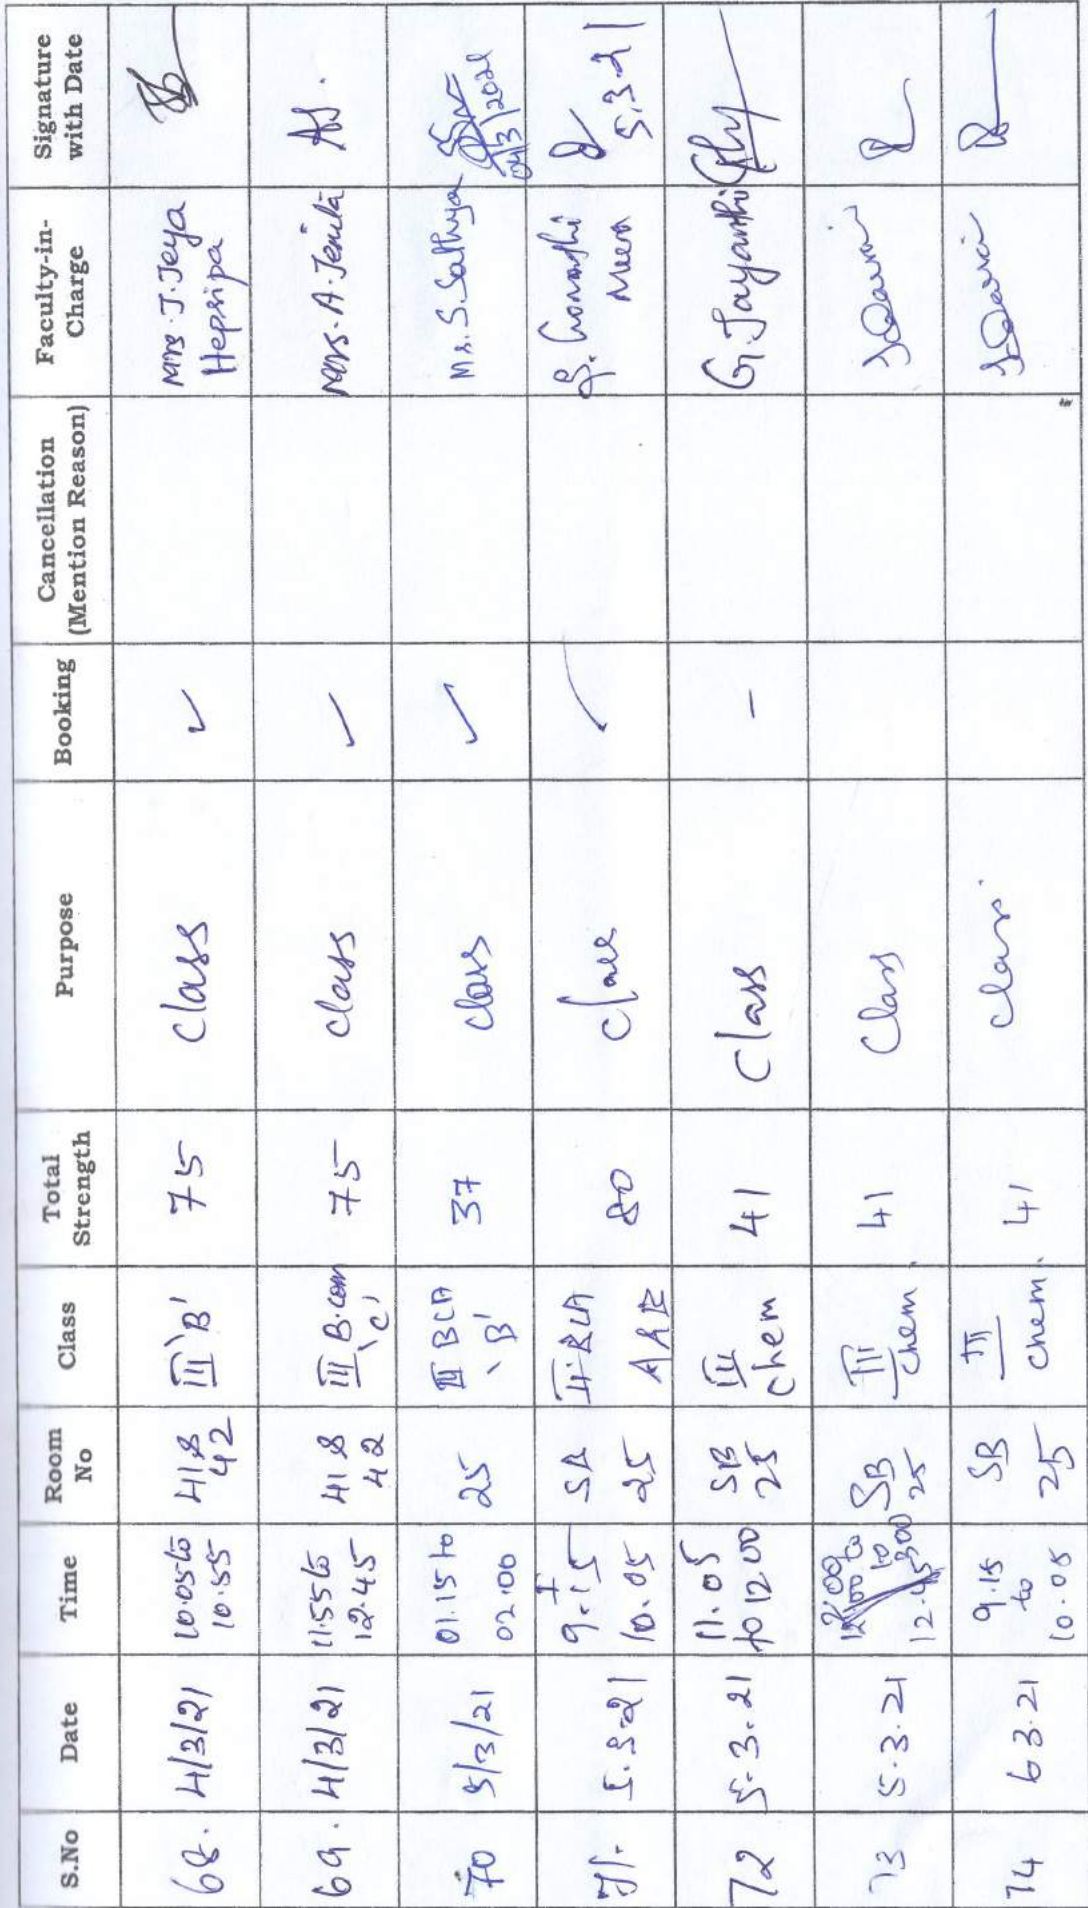 S.No Date Time Room No Class Total Strength Purpose Booking Cancellation (Mention Reason) Faculty-in-Charge Signature with Date
68. 4/3/21 10.05 to 10.55 41 & 42 III 'B' 75 Class ✓ Mrs. J. Jeya Hepsipa
69. 4/3/21 11.55 to 12.45 41 & 42 III B.com 'C' 75 class ✓ Mrs. A. Jenita AJ.
70 5/3/21 01.15 to 02.00 25 III BCA 'B' 37 class ✓ Ms. S. Sathya 04/3/2021
71. 5.3.21 9.15 10.05 25 II BCA 80 class ✓ Meena 5.3.21
72 5.3.21 11.05 to 12.00 SB 25 III Chem 41 Class - G. Jayanthi
73 5.3.21 SB 25 III chem. 41 Class
74 6 3.21 9.15 to 10.05 SB 25 III chem. 41 class.